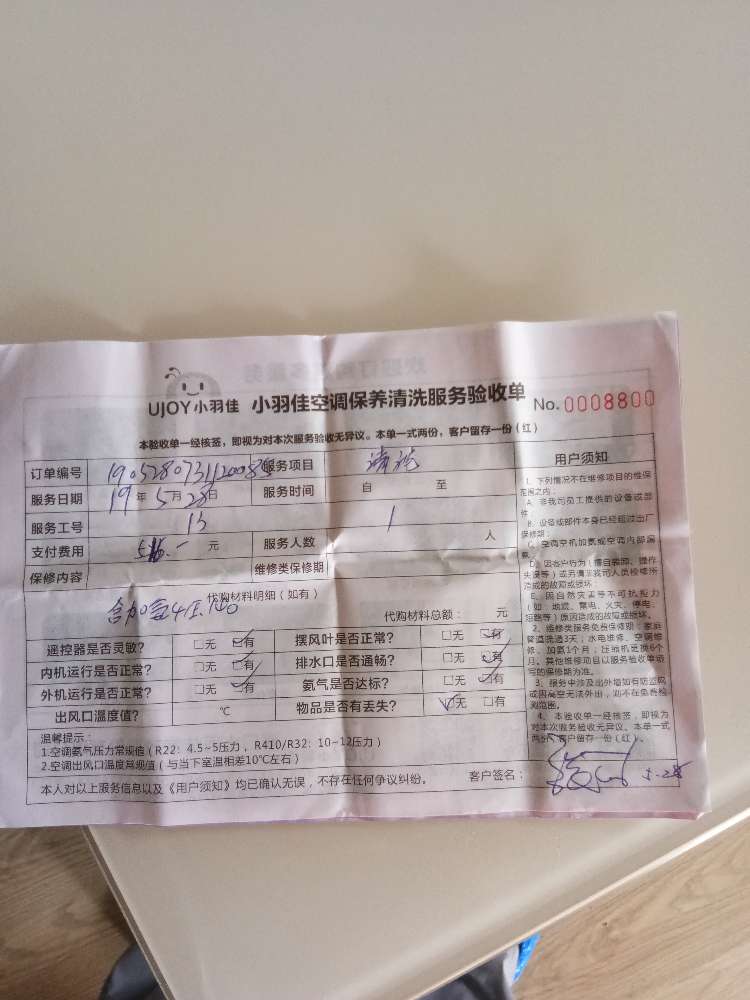 UJOY小羽佳 小羽佳空调保养清洗服务验收单 No.0008800
本验收单一经核签，即视为对本次服务验收无异议。本单一式两份，客户留存一份（红）
订单编号 服务项目 清洗
服务日期 19年5月28日 服务时间 自 至
服务工号 13 服务人数 1 人
支付费用 元
保修内容 维修类保修期
代购材料明细（如有）
代购材料总额： 元
遥控器是否灵敏？ □无 □有 摆风叶是否正常？ □无 □有
内机运行是否正常？ □无 □有 排水口是否通畅？ □无 □有
外机运行是否正常？ □无 □有 氨气是否达标？ □无 □有
出风口温度值？ ℃ 物品是否有丢失？ □无 □有
温馨提示：
1.空调氨气压力常规值（R22：4.5~5压力，R410/R32：10~12压力）
2.空调出风口温度常规值（与当下室温相差10℃左右）
本人对以上服务信息以及《用户须知》均已确认无误，不存在任何争议纠纷。 客户签名：
用户须知
1、下列情况不在维修项目的维保
范围之内：
A、非我司员工提供的设备或部
件
B、设备或部件本身已经超过出厂
保修期
C、空调空机加氨或空调内部漏
D、因客户行为（擅自装卸、操作
失误等）或另请非我司人员检修所
造成的故障或损坏
E、因自然灾害等不可抗拒力
（如 地震、雷电、火灾、停电、
短路等）原因造成的故障或损坏。
2、维修类服务免费保修期：家庭
管道疏通3天；水电维修、空调维
修、加氨1个月；压缩机更换6个
月。其他维修项目以服务验收单填
写的保修期为准。
3、服务中涉及出外墙如有防盗网
或因高空无法外出，则不在免费检
测范围。
4、本验收单一经核签，即视为
对本次服务验收无异议。本单一式
两份，客户留存一份（红）